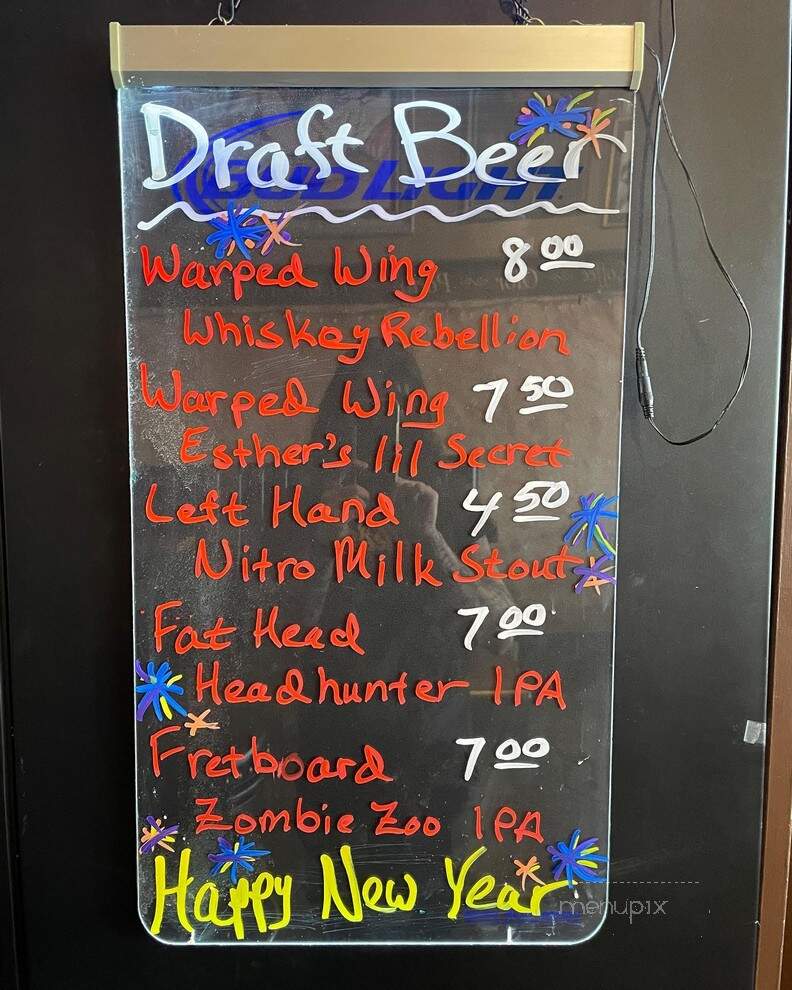 Draft Beer
BUD LIGHT
Warped Wing 8 00
Whiskey Rebellion
Warped Wing 7 50
Esther's lil Secret
Left Hand 4 50
Nitro Milk Stout
Fat Head 7 00
Headhunter IPA
Fretboard 7 00
Zombie Zoo IPA
Happy New Year
menupix